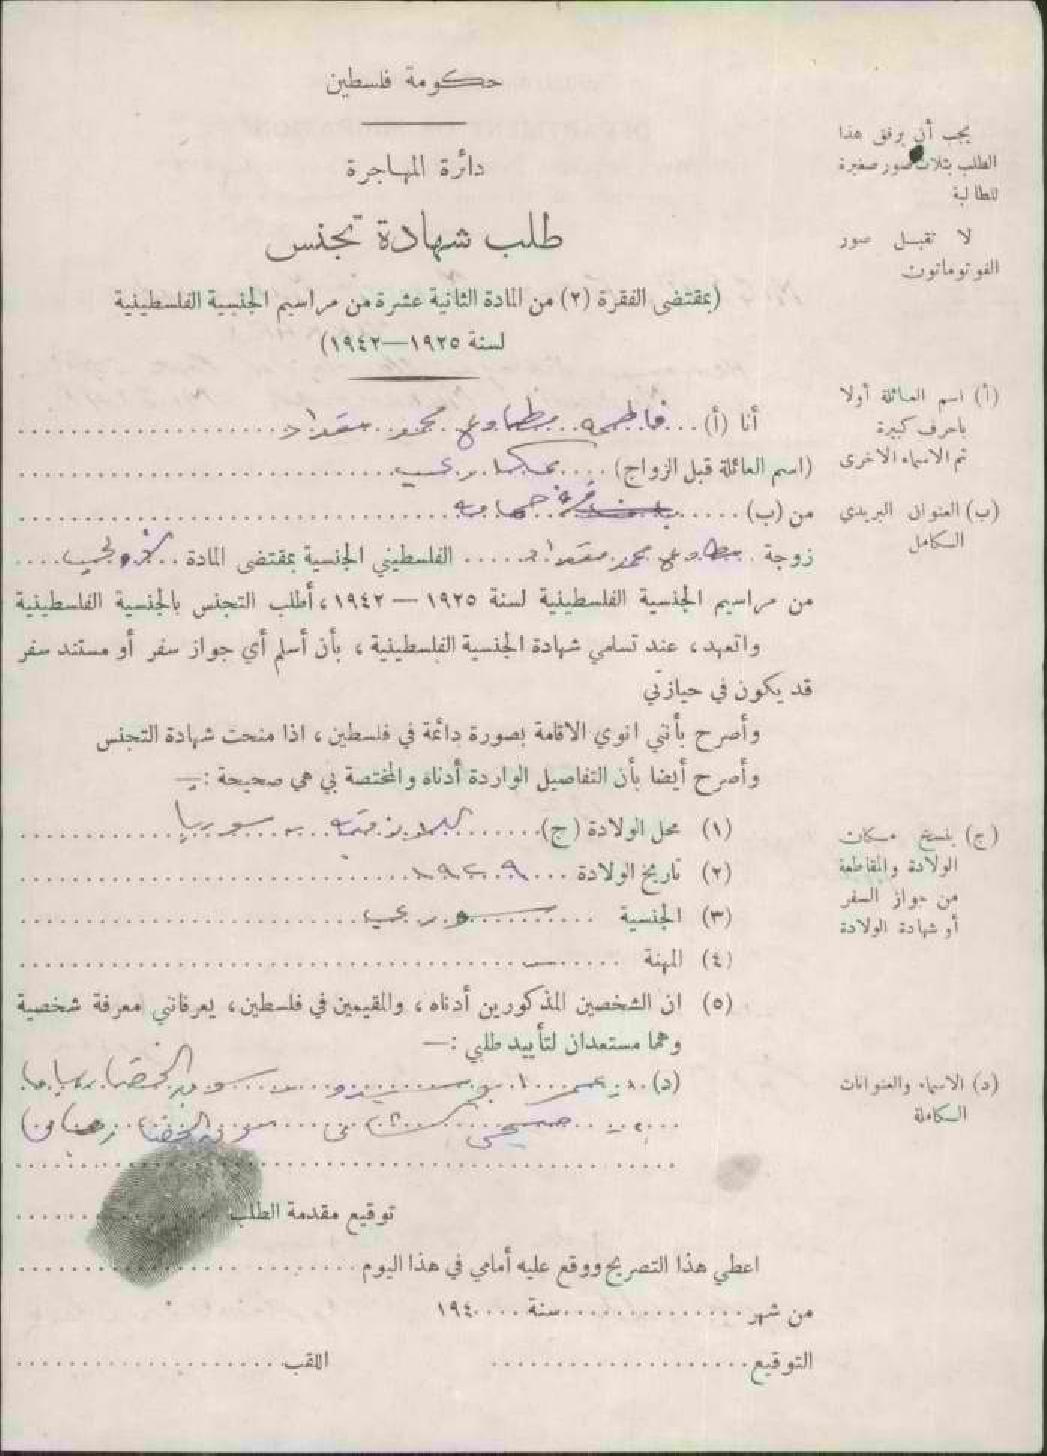 حكومة فلسطين
دائرة المهاجرة
طلب شهادة تجنس
(بمقتضى الفقرة (٢) من المادة الثانية عشرة من مراسيم الجنسية الفلسطينية
لسنة ١٩٢٥—١٩٤٢)
يجب أن يرفق هذا
الطلب بثلاث صور صغيرة
للطالبة
لا تقبل صور
الفوتوماتون
أنا (أ) فاطمه محمد مقداد
(اسم العائلة قبل الزواج)
من (ب)
زوجة محمد مقداد الفلسطيني الجنسية بمقتضى المادة
من مراسيم الجنسية الفلسطينية لسنة ١٩٢٥ — ١٩٤٢، أطلب التجنس بالجنسية الفلسطينية
واتعهد، عند تسلمي شهادة الجنسية الفلسطينية، بأن أسلم أي جواز سفر أو مستند سفر
قد يكون في حيازتي
وأصرح بأنني انوي الاقامة بصورة دائمة في فلسطين، اذا منحت شهادة التجنس
وأصرح أيضا بأن التفاصيل الواردة أدناه والمختصة بي هي صحيحة :—
(١) محل الولادة (ج) سوريا
(٢) تاريخ الولادة
(٣) الجنسية
(٤) المهنة —
(٥) ان الشخصين المذكورين أدناه، والمقيمين في فلسطين، يعرفانني معرفة شخصية
وهما مستعدان لتأييد طلبي :—
(د)
توقيع مقدمة الطلب
اعطي هذا التصريح ووقع عليه أمامي في هذا اليوم
من شهر سنة ١٩٤
التوقيع اللقب
(أ) اسم العائلة أولا
باحرف كبيرة
ثم الاسماء الاخرى
(ب) العنوان البريدي
الكامل
(ج) بنسخ مكان
الولادة والمقاطعة
من جواز السفر
أو شهادة الولادة
(د) الاسماء والعنوانات
الكاملة